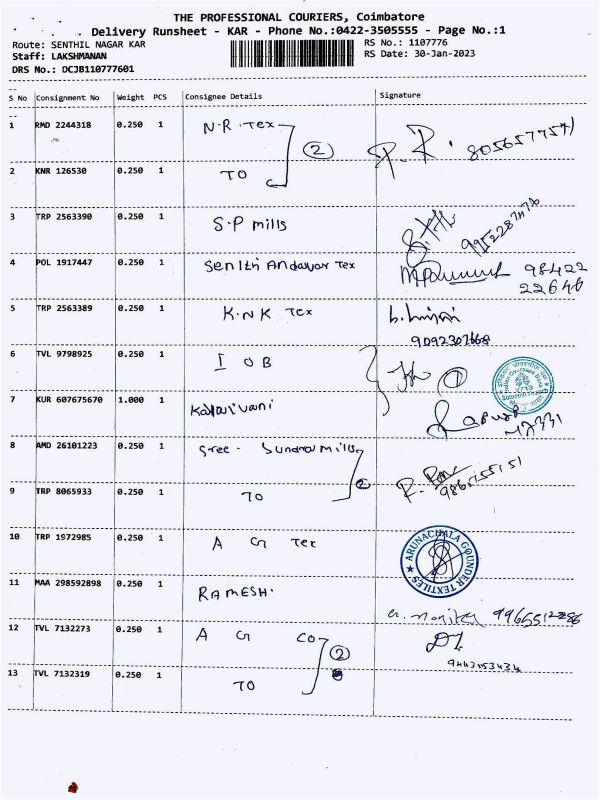 THE PROFESSIONAL COURIERS, Coimbatore
Delivery Runsheet - KAR - Phone No.:0422-3505555 - Page No.:1
Route: SENTHIL NAGAR KAR
RS No.: 1107776
Staff: LAKSHMANAN
RS Date: 30-Jan-2023
DRS No.: DCJB110777601
S No Consignment No Weight PCS Consignee Details Signature
1 RMD 2244318 0.250 1 N.R. Tex 2
2 KNR 126530 0.250 1 TO
3 TRP 2563390 0.250 1 S.P mills
4 POL 1917447 0.250 1 Senlthi Andavar Tex 98422
22646
5 TRP 2563389 0.250 1 K.N.K Tex
9092307668
6 TVL 9798925 0.250 1 I O B
7 KUR 607675670 1.000 1 Kalaivani
8 AMD 26101223 0.250 1 Sree. Sundra Mills 2
9 TRP 8065933 0.250 1 TO
10 TRP 1972985 0.250 1 A G Tex
ARUNACHALA GOUNDER TEXTILES
11 MAA 298592898 0.250 1 RAMESH.
12 TVL 7132273 0.250 1 A G CO 2
9443153434
13 TVL 7132319 0.250 1 TO